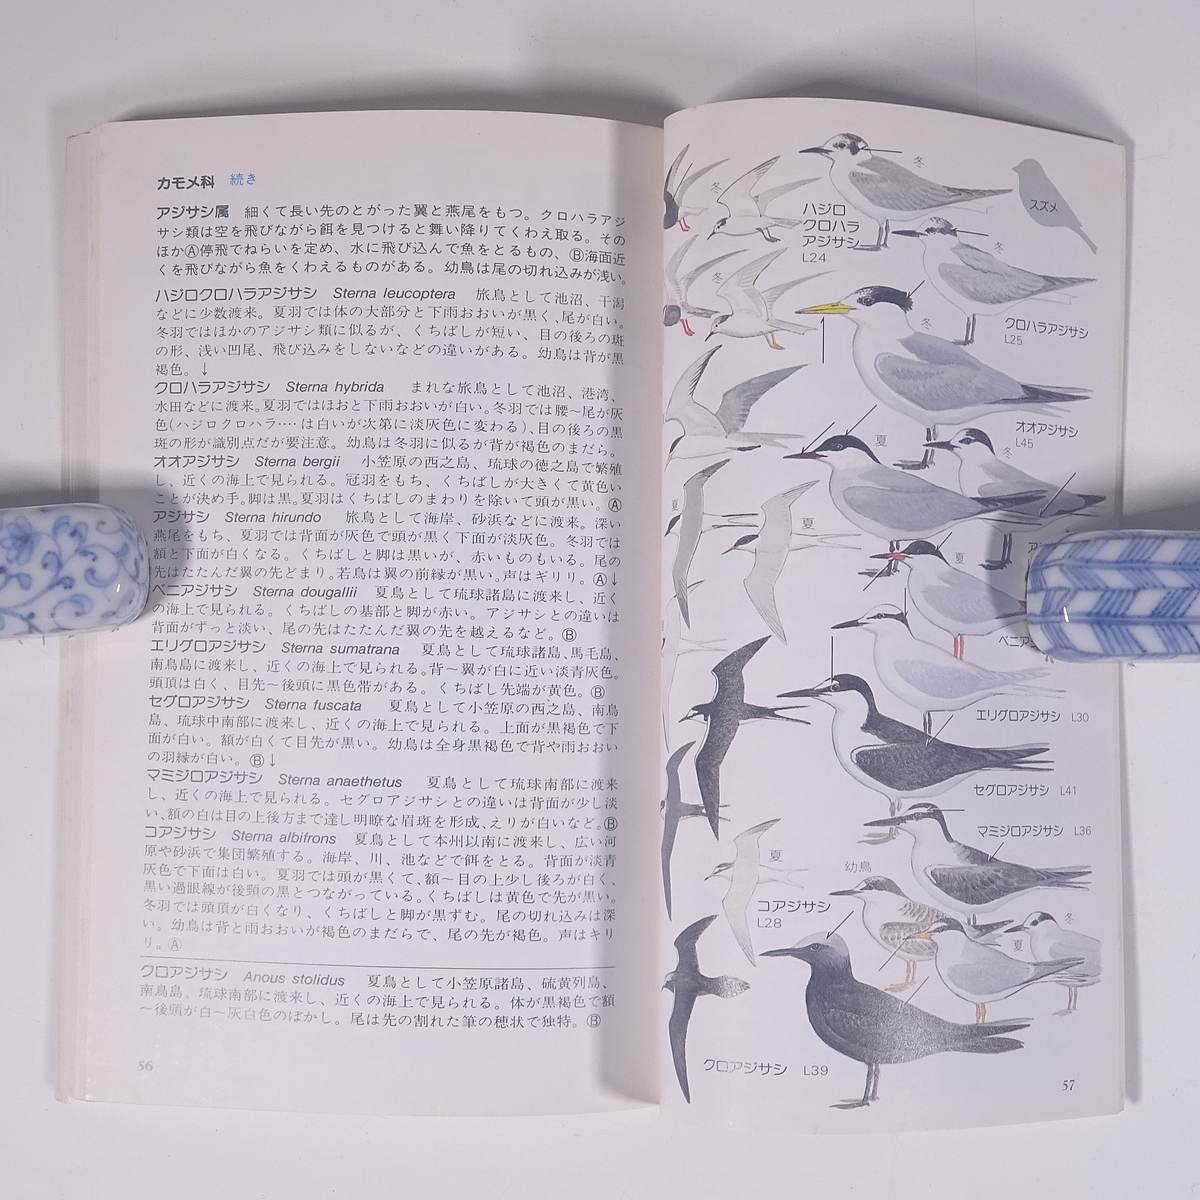 カモメ科 続き
アジサシ属 細くて長い先のとがった翼と燕尾をもつ。クロハラアジ
サシ類は空を飛びながら餌を見つけると舞い降りてくわえ取る。その
ほかⒶ停飛でねらいを定め、水に飛び込んで魚をとるもの、Ⓑ海面近
くを飛びながら魚をくわえるものがある。幼鳥は尾の切れ込みが浅い。
ハジロクロハラアジサシ Sterna leucoptera 旅鳥として池沼、干潟
などに少数渡来。夏羽では体の大部分と下雨おおいが黒く、尾が白い。
冬羽ではほかのアジサシ類に似るが、くちばしが短い、目の後ろの斑
の形、浅い凹尾、飛び込みをしないなどの違いがある。幼鳥は背が黒
褐色。↓
クロハラアジサシ Sterna hybrida まれな旅鳥として池沼、港湾、
水田などに渡来。夏羽ではほおと下雨おおいが白い。冬羽では腰〜尾が灰
色(ハジロクロハラ‥‥は白いが次第に淡灰色に変わる)、目の後ろの黒
斑の形が識別点だが要注意。幼鳥は冬羽に似るが背が褐色のまだら。
オオアジサシ Sterna bergii 小笠原の西之島、琉球の徳之島で繁殖
し、近くの海上で見られる。冠羽をもち、くちばしが大きくて黄色い
ことが決め手。脚は黒。夏羽はくちばしのまわりを除いて頭が黒い。Ⓐ
アジサシ Sterna hirundo 旅鳥として海岸、砂浜などに渡来。深い
燕尾をもち、夏羽では背面が灰色で頭が黒く下面が淡灰色。冬羽では
額と下面が白くなる。くちばしと脚は黒いが、赤いものもいる。尾の
先はたたんだ翼の先どまり。若鳥は翼の前縁が黒い。声はギリリ。Ⓐ↓
ベニアジサシ Sterna dougallii 夏鳥として琉球諸島に渡来し、近く
の海上で見られる。くちばしの基部と脚が赤い。アジサシとの違いは
背面がずっと淡い、尾の先はたたんだ翼の先を越えるなど。Ⓑ
エリグロアジサシ Sterna sumatrana 夏鳥として琉球諸島、馬毛島、
南鳥島に渡来し、近くの海上で見られる。背〜翼が白に近い淡青灰色。
頭頂は白く、目先〜後頭に黒色帯がある。くちばし先端が黄色。Ⓑ
セグロアジサシ Sterna fuscata 夏鳥として小笠原の西之島、南鳥
島、琉球中南部に渡来し、近くの海上で見られる。上面が黒褐色で下
面が白い。額が白くて目先が黒い。幼鳥は全身黒褐色で背や雨おおい
の羽縁が白い。Ⓑ↓
マミジロアジサシ Sterna anaethetus 夏鳥として琉球南部に渡来
し、近くの海上で見られる。セグロアジサシとの違いは背面が少し淡
い、額の白は目の上後方まで達し明瞭な眉斑を形成、えりが白いなど。Ⓑ
コアジサシ Sterna albifrons 夏鳥として本州以南に渡来し、広い河
原や砂浜で集団繁殖する。海岸、川、池などで餌をとる。背面が淡青
灰色で下面は白い。夏羽では頭が黒くて、額〜目の上少し後ろが白く、
黒い過眼線が後頸の黒とつながっている。くちばしは黄色で先が黒い。
冬羽では頭頂が白くなり、くちばしと脚が黒ずむ。尾の切れ込みは深
い。幼鳥は背と雨おおいが褐色のまだらで、尾の先が褐色。声はキリ
リ。Ⓐ
クロアジサシ Anous stolidus 夏鳥として小笠原諸島、硫黄列島、
南鳥島、琉球南部に渡来し、近くの海上で見られる。体が黒褐色で額
〜後頭が白〜灰白色のぼかし。尾は先の割れた筆の穂状で独特。Ⓑ
56
冬
冬
冬
スズメ
ハジロ
クロハラ
アジサシ
L24
冬
冬
クロハラアジサシ
L25
冬
オオアジサシ
L45
夏
冬
夏
夏
ア
夏
ベニア
エリグロアジサシ L30
セグロアジサシ L41
マミジロアジサシ L36
夏
幼鳥
コアジサシ
L28
夏
冬
クロアジサシ L39
57